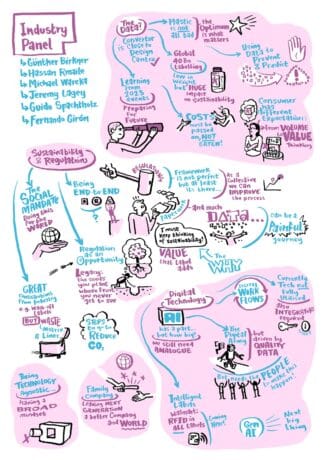 Industry
Panel
Günther Birkner
Hassan Rmaile
Michael Wareka
Jeremy Lagey
Guido Spachtholz
Fernando Girón
The Data?
Plastic is
not all
bad
the Optimum
is what
matters
Convertor
is close to
Design
Centre
Global
40 Bn
Labelling
Low in
weight
but HUGE
impact
on sustainability
Using
DATA to
Prevent &
Predict
Learning
from
2025
events
Preparing
for
Future
COSTS
must be
passed on,
NOT
EATEN!
Consumer
has
Different
Expectation
from VOLUME
to VALUE
Thinking
Sustainability
& Regulation
The
SOCIAL
MANDATE
doing this
for the
WORLD
Being
END to END
REGULATIONS
Framework
is not perfect
but at
least it's
there...
As a
Collective
we can
IMPROVE
the process
TAPESTRY
and much
DATA...
can be a
Painful
journey
Regulation
as an
Opportunity
It must
keep thinking
of sustainability!
VALUE
that Label
adds
The
WHY
Legacy:
the seeds
you plant
whose fruits
you never
get to
see
GREAT
Contribution
from Industry
e.g. Wash-off
Labels
BUT WASTE
Matrix
& Liner
STEPS
End-to-End
to
REDUCE
CO2
Digital
Technology
AI
has a part...
but how big?
we still need
ANALOGUE
DIGITAL
WORKFLOWS
Currently
Tech not
fully
Utilised
also
INTEGRATOR
required
AI as the
Digital
Ally
but
driven by
QUALITY
DATA
But need the PEOPLE
to make this
happen!
Being
TECHNOLOGY
Agnostic
having a
BROAD
mindset
Family
Company
Leaving NEXT
GENERATION
a better Company
and WORLD
Intelligent
Labels
Walmart:
RFID in
ALL Labels
Coming
Next!
Gen
AI
Next
big
thing